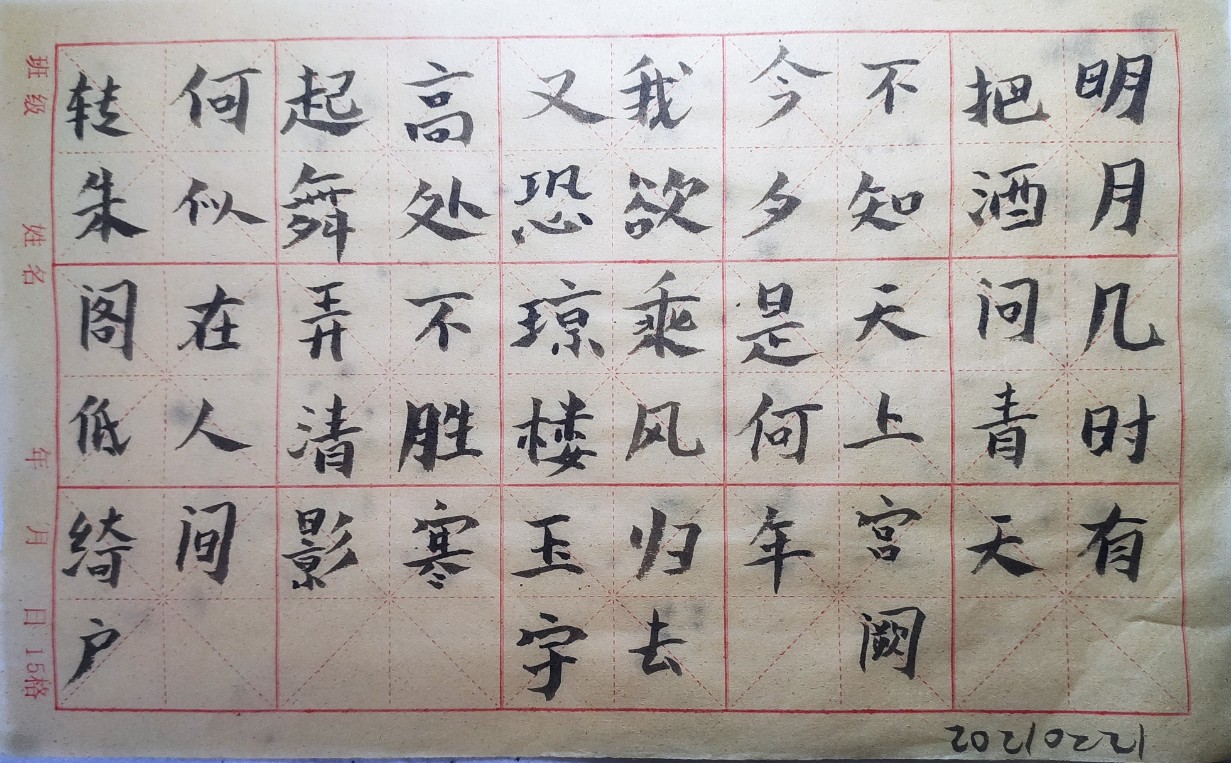 明月几时有
把酒问青天
不知天上宫阙
今夕是何年
我欲乘风归去
又恐琼楼玉字
高处不胜寒
起舞弄清影
何似在人间
转朱阁低绮户
班级 姓名 年 月 日 15格
20210221